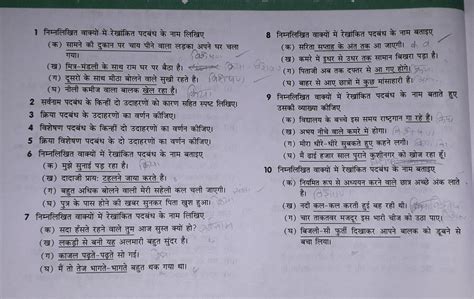 1 निम्नलिखित वाक्यों में रेखांकित पदबंध के नाम लिखिए
(क) सामने की दुकान पर चाय पीने वाला लड़का अपने घर चला
गया।
(ख) मित्र-मंडली के साथ राम घर पर बैठा है।
(ग) दूसरों के साथ मीठा बोलने वाले सुखी रहते हैं।
(घ) नीली कमीज वाला बालक खेल रहा है।
2 सर्वनाम पदबंध के किन्हीं दो उदाहरणों को कारण सहित स्पष्ट लिखिए।
3 क्रिया पदबंध के उदाहरणों का वर्णन कीजिए।
4 विशेषण पदबंध के किन्हीं दो उदाहरणों का वर्णन कीजिए।
5 क्रियाविशेषण पदबंध के दो उदाहरणों का वर्णन कीजिए।
6 निम्नलिखित वाक्यों में रेखांकित पदबंध के नाम बताइए
(क) मुझे सुनाई पड़ रहा है।
(ख) दादाजी प्रायः टहलने जाया करते हैं।
(ग) बहुत अधिक बोलने वाली मेरी सहेली कल चली जाएगी।
(घ) पुत्र के पास होने की खबर सुनकर पिता खुश हुआ।
7 निम्नलिखित वाक्यों में रेखांकित पदबंध के नाम लिखिए
(क) सदा हँसते रहने वाले तुम आज सुस्त क्यों हो?
(ख) लकड़ी से बनी यह अलमारी बहुत सुंदर है।
(ग) काजल पढ़ते-पढ़ते सो गई।
(घ) मैं तो तेज भागते-भागते बहुत थक गया था।
8 निम्नलिखित वाक्यों में रेखांकित पदबंध के नाम बताइए
(क) सरिता सप्ताह के अंत तक आ जाएगी।
(ख) कमरे में इधर से उधर तक सामान बिखरा पड़ा है।
(ग) पिताजी अब तक दफ्तर से आ गए होंगे।
(घ) बाहर से आए छात्रों में कुछ मांसाहारी हैं।
9 निम्नलिखित वाक्यों में रेखांकित पदबंध के नाम बताते हुए
उसकी व्याख्या कीजिए
(क) विद्यालय के बच्चे इस समय राष्ट्रगान गा रहे हैं।
(ख) अभय नीचे वाले कमरे में होगा।
(ग) मीरा धीरे-धीरे सुबकते हुए कहने लगी।
(घ) मैं ढाई हजार साल पुराने कुशीनगर को खोज रहा हूँ।
10 निम्नलिखित वाक्यों में रेखांकित पदबंध के नाम बताइए
(क) नियमित रूप से अध्ययन करने वाले छात्र अच्छे अंक लाते
हैं।
(ख) नदी कल-कल करती हुई बह रही थी।
(ग) चार ताकतवर मजदूर इस भारी चीज को उठा पाए।
(घ) बिजली-सी फुर्ती दिखाकर आपने बालक को डूबने से
बचा लिया।